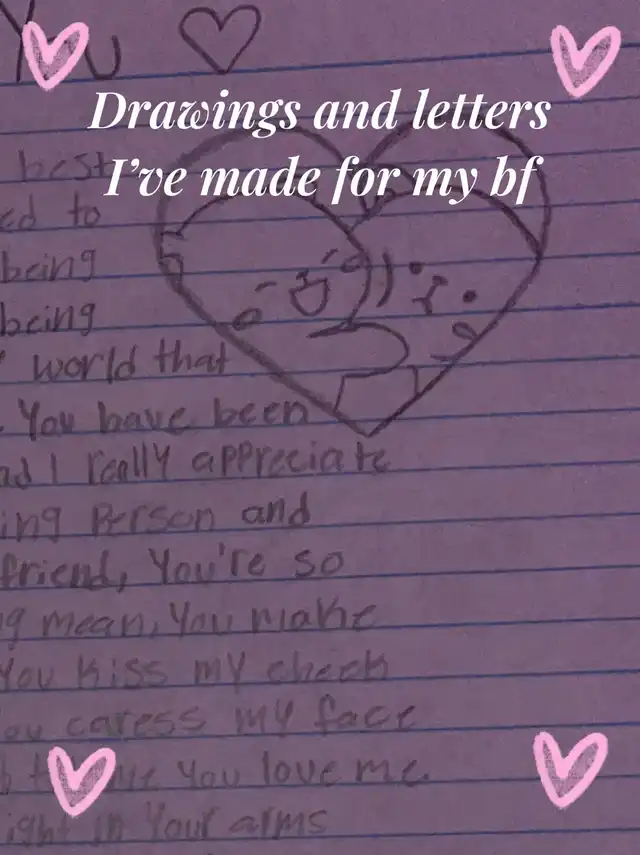 You
Drawings and letters
I've made for my bf
best
ed to
being
being
world that
. You have been
ad I really appreciate
ing person and
friend, You're so
g mean, You make
You kiss my cheek
ou caress my face
You love me.
ight in Your arms